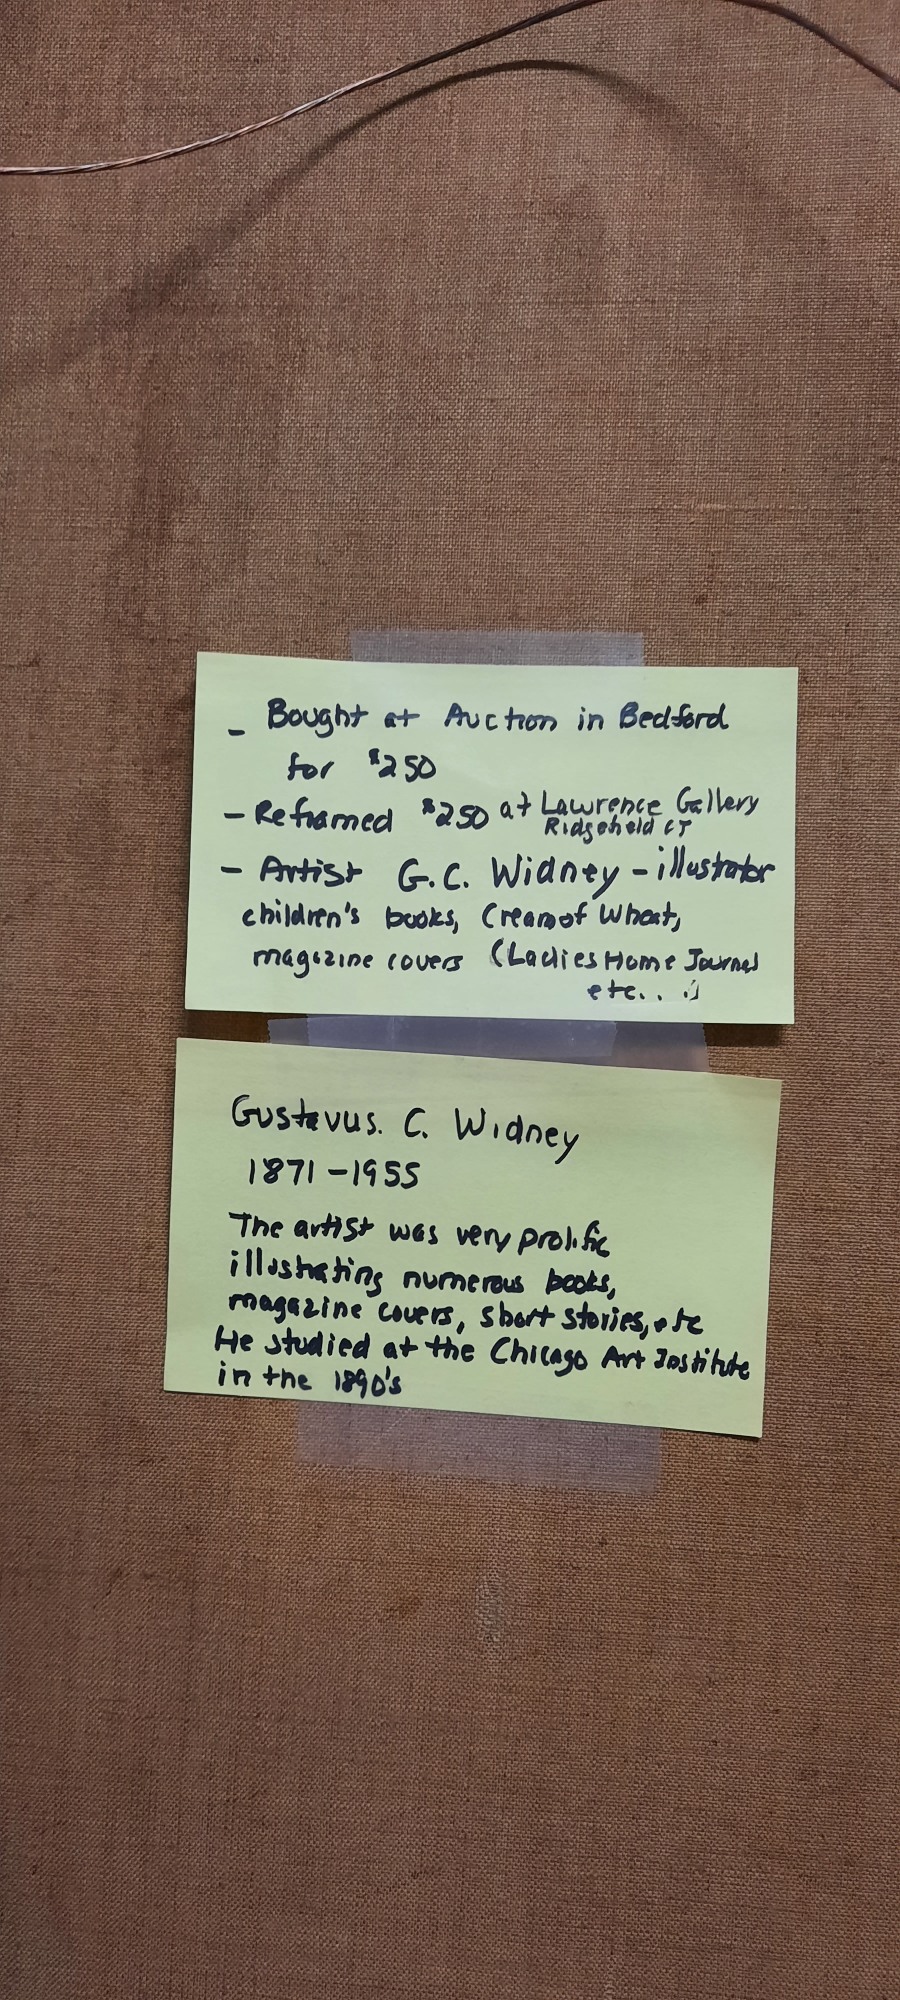 - Bought at Auction in Bedford
for $250
- Reframed $250 at Lawrence Gallery
Ridgefield CT
- Artist G.C. Widney - illustrator
children's books, Cream of Wheat,
magazine covers (Ladies Home Journal
etc...)
Gustavus. C. Widney
1871-1955
The artist was very prolific
illustrating numerous books,
magazine covers, short stories, etc
He studied at the Chicago Art Institute
in the 1890's